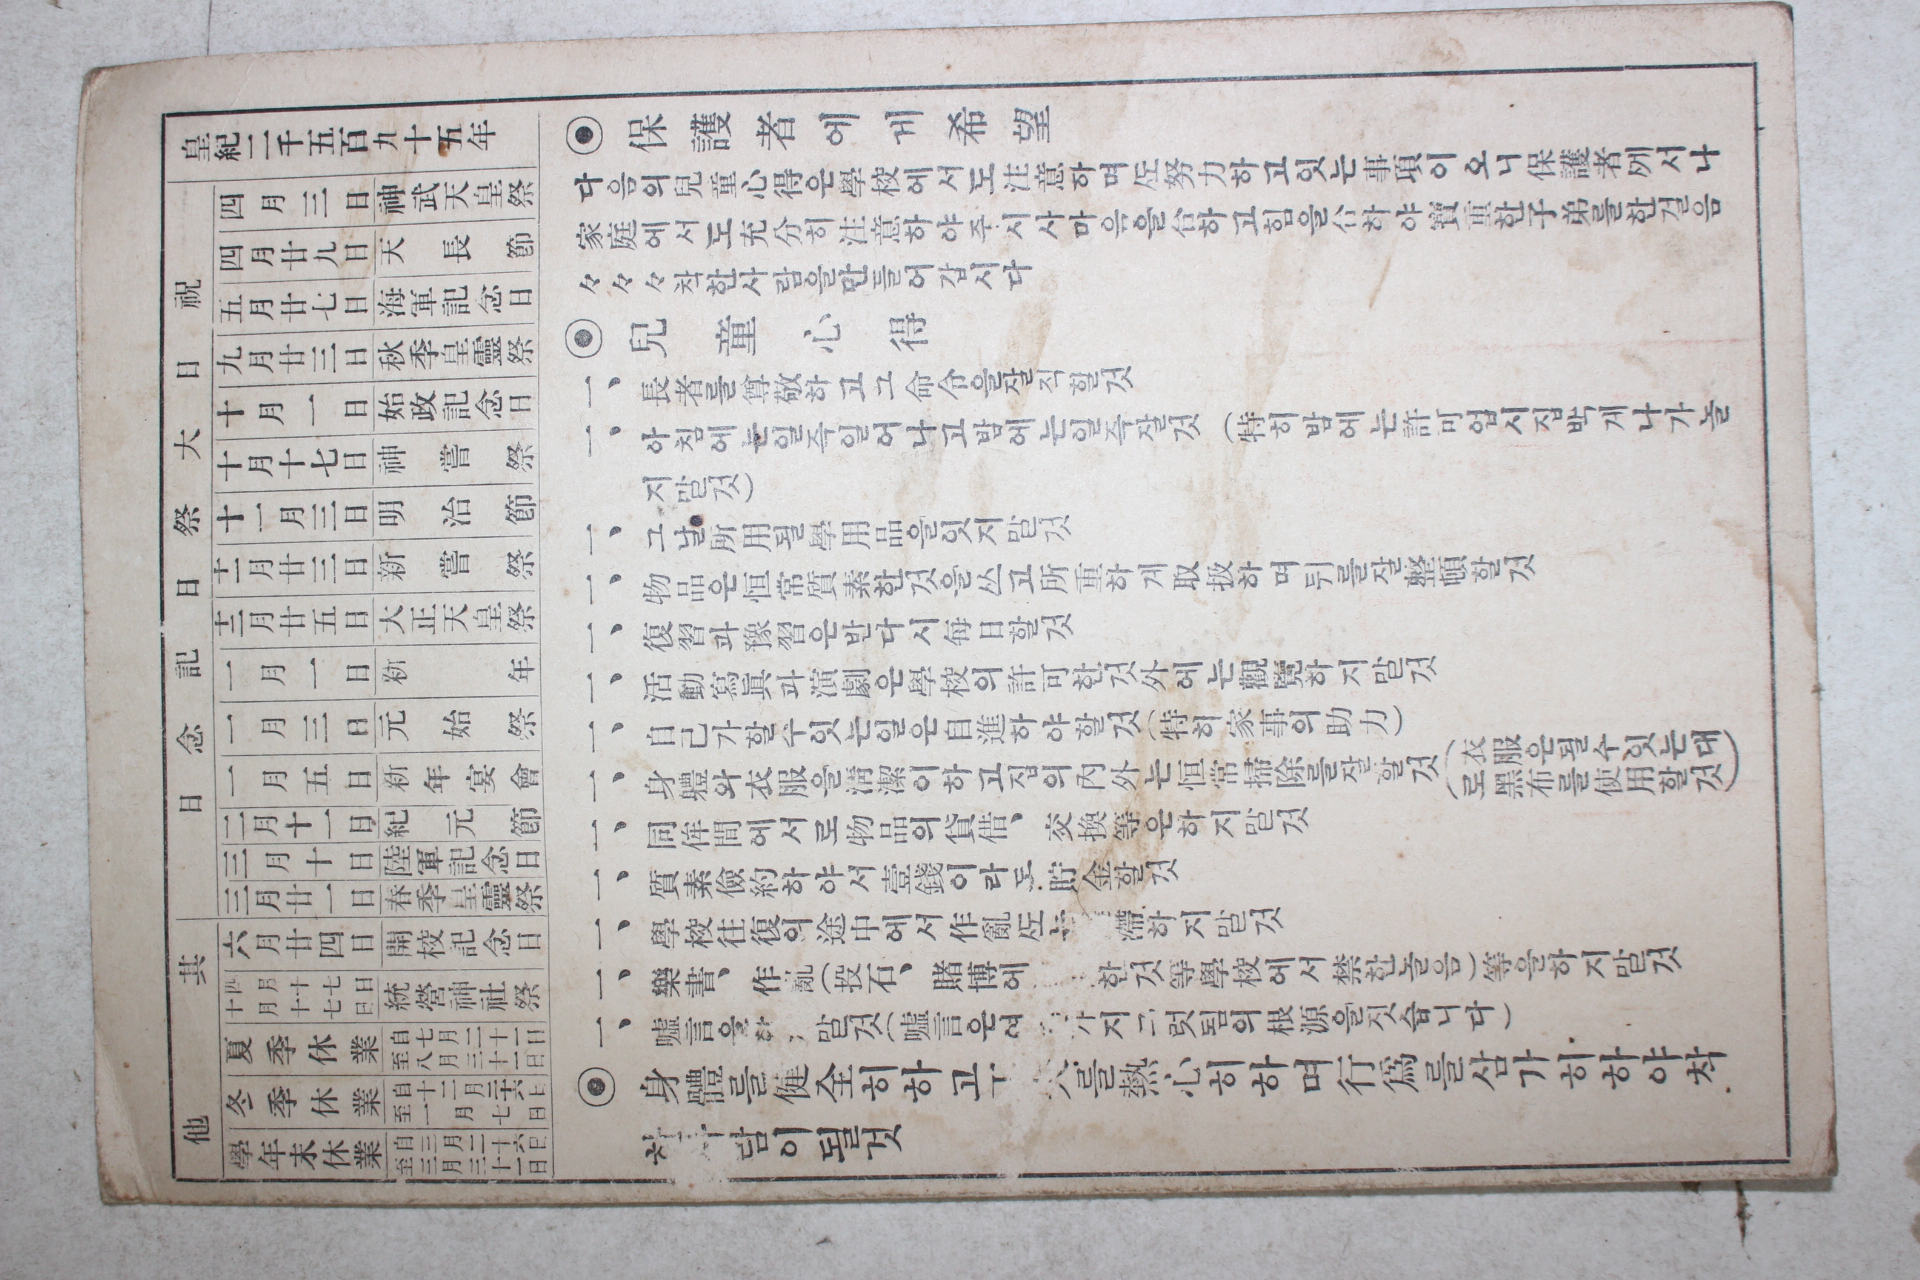 皇紀二千五百九十五年
祝日大祭日記念日
四月三日 神武天皇祭
四月廿九日 天長節
五月廿七日 海軍記念日
九月廿三日 秋季皇靈祭
十月一日 始政記念日
十月十七日 神嘗祭
十一月三日 明治節
十一月廿三日 新嘗祭
十二月廿五日 大正天皇祭
一月一日 新年
一月三日 元始祭
一月五日 新年宴會
二月十一日 紀元節
三月十日 陸軍記念日
三月廿一日 春季皇靈祭
其他
六月廿四日 開校記念日
四月十七日
十月十七日 統營神社祭
夏季休業 自七月二十一日
至八月三十一日
冬季休業 自十二月二十六日
至一月七日
學年末休業 自三月二十六日
至三月三十一日
◉保護者에게希望
다음의兒童心得은學校에서도注意하며ᄯᅩ努力하고잇는事項이오니保護者ᄭᅦ서나
家庭에서도充分히注意하야주시사마음을合하고힘을合하야寶重한子弟를한걸음
々々々착한사람을만들어갑시다
◉兒童心得
一、長者를尊敬하고그命令을잘직할것
一、아침에는일즉일어나고밤에는일즉잘것 (特히밤에는許可업시집박게나가놀
지말것)
一、그날所用될學用品을잇지말것
一、物品은恒常質素한것을쓰고所重하게取扱하며뒤를잘整頓할것
一、復習과豫習은반다시每日할것
一、活動寫眞과演劇은學校의許可한것外에는觀覽하지말것
一、自己가할수잇는일은自進하야할것(特히家事의助力)
一、身軆와衣服을淸潔이하고집의內外는恒常掃除를잘할것(衣服은될수잇는대
로黑布를使用할것)
一、同侔間에서로物品의貸借、交換等은하지말것
一、質素儉約하야서壹錢이라도貯金할것
一、學校往復의途中에서作亂ᄯᅩ는滯하지말것
一、樂書、作亂(投石、賭博에한것等學校에서禁한놀음)等을하지말것
一、噓言을하말것(噓言은여가지그릇됨의根源을짓습니다)
◉身體를健全히하고를熱心히하며行爲를삼가히하야착
한사람이될것